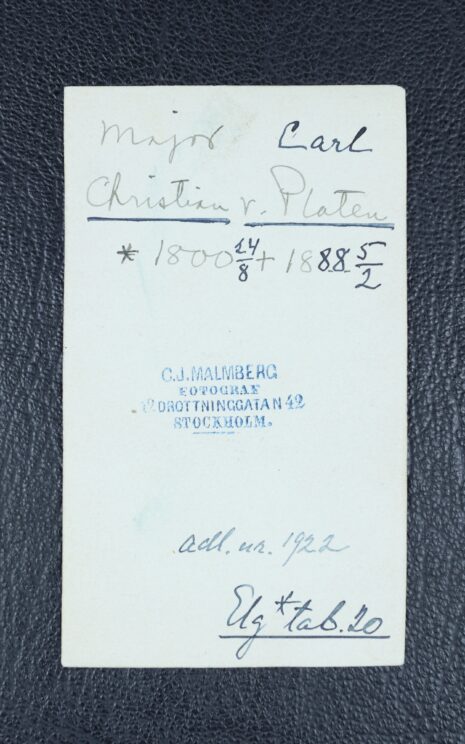 Major Carl
Christian v. Platen
* 1800 24/8 + 1888 5/2
C.J. MALMBERG
FOTOGRAF
42 DROTTNINGGATAN 42
STOCKHOLM.
adl. nr. 1922
Elg * tab. 20